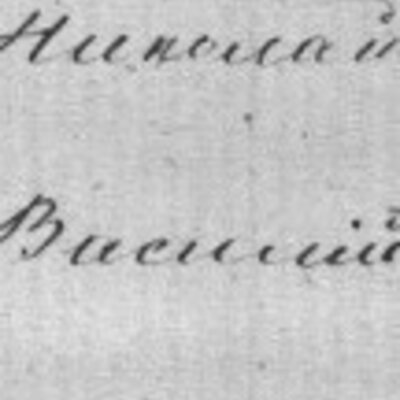 Николай
Василій